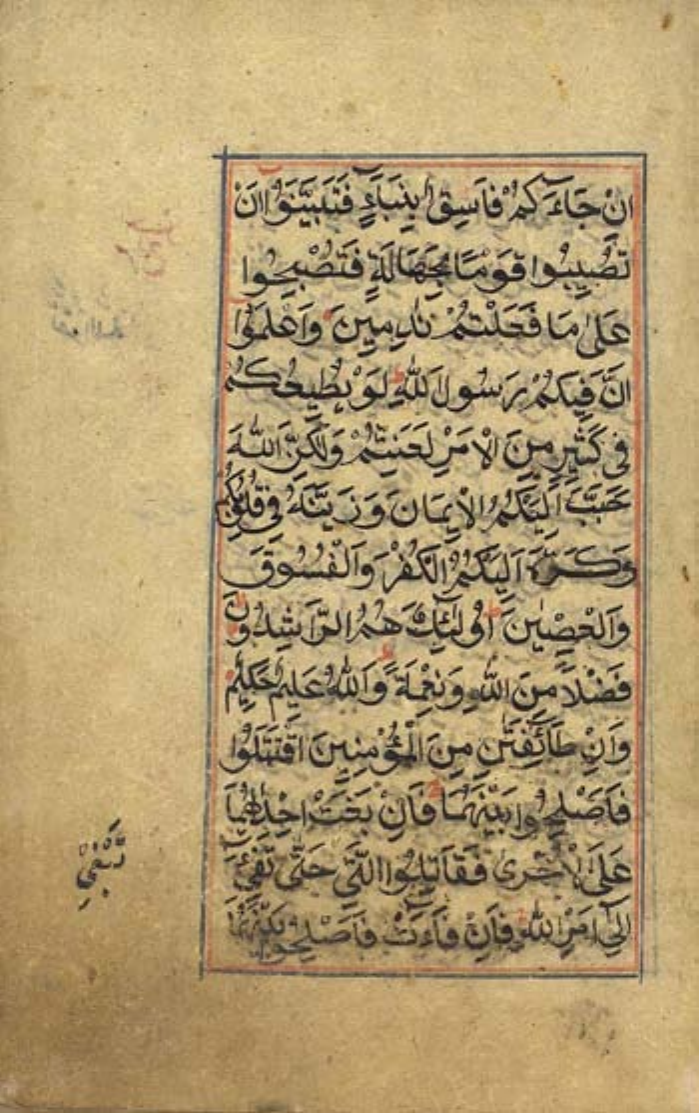 اِنْ جَاءَكُمْ فَاسِقٌ بِنَبَاءٍ فَتَبَيَّنُوا اَنْ
تُصِيبُوا قَوْمًا بِجَهَالَةٍ فَتُصْبِحُوا
عَلٰى مَا فَعَلْتُمْ نٰدِمِينَ وَاعْلَمُوا
اَنَّ فِيكُمْ رَسُولَ اللّٰهِ لَوْ يُطِيعُكُمْ
فِى كَثِيرٍ مِنَ الْاَمْرِ لَعَنِتُّمْ وَلٰكِنَّ اللّٰهَ
حَبَّبَ اِلَيْكُمُ الْاِيمَانَ وَزَيَّنَهُ فِى قُلُوبِكُمْ
وَكَرَّهَ اِلَيْكُمُ الْكُفْرَ وَالْفُسُوقَ
وَالْعِصْيٰنَ اُولٰئِكَ هُمُ الرَّاشِدُونَ
فَضْلًا مِنَ اللّٰهِ وَنِعْمَةً وَاللّٰهُ عَلِيمٌ حَكِيمٌ
وَاِنْ طَائِفَتٰنِ مِنَ الْمُؤْمِنِينَ اقْتَتَلُوا
فَاَصْلِحُوا بَيْنَهُمَا فَاِنْ بَغَتْ اِحْدٰهُمَا
عَلَى الْاُخْرٰى فَقَاتِلُوا الَّتِى حَتّٰى تَفِىءَ
اِلٰى اَمْرِ اللّٰهِ فَاِنْ فَاءَتْ فَاَصْلِحُوا بَيْنَهُمَا
تَبْغِى